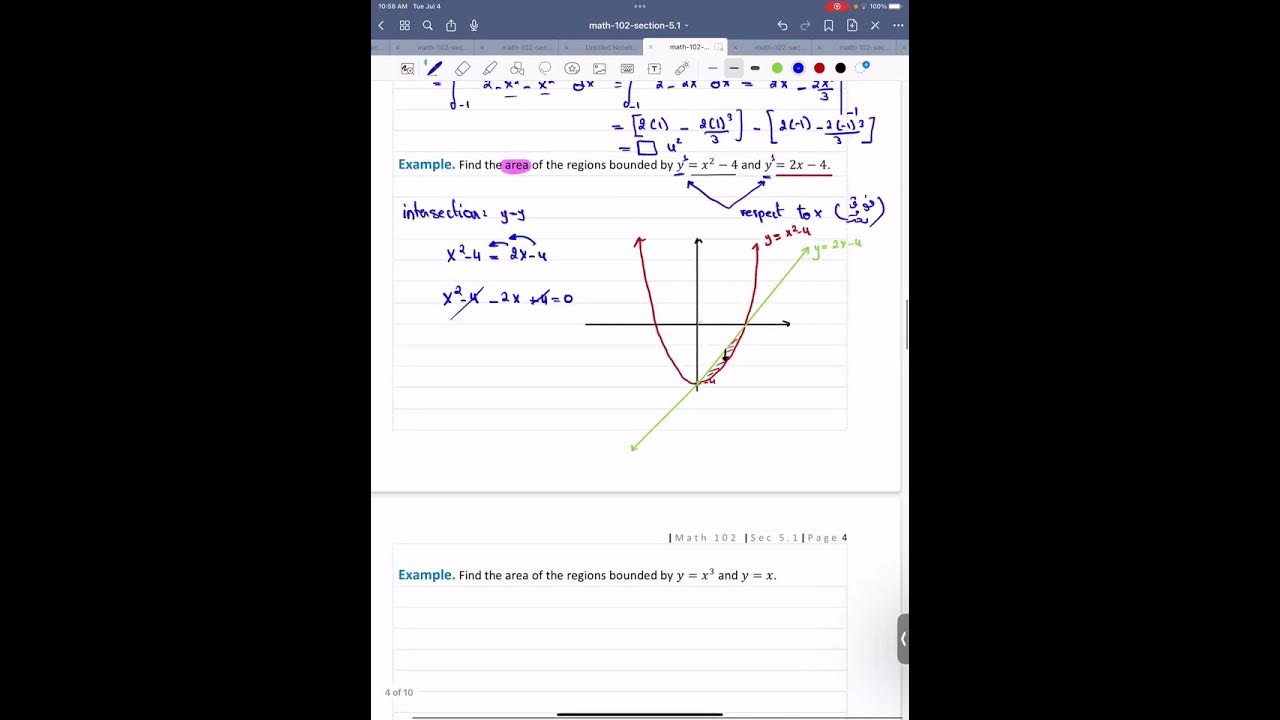 10:56 AM Tue Jul 4
100%
math-102-section-5.1
math-102-sec...
math-102-sec...
Untitled Noteb...
math-102-...
math-102-sec...
math-102-sec...
= ∫-1 2 - x² - x² dx = ∫-1 2 - 2x² dx = 2x - 2x³/3 |-1
= [2(1) - 2(1)³/3] - [2(-1) - 2(-1)³/3]
= □ u²
Example. Find the area of the regions bounded by y = x² − 4 and y = 2x − 4.
intersection: y=y
respect to x
x²-4 = 2x-4
x²-4 - 2x +4 = 0
y = x²-4
y = 2x-4
-4
|Math 102 |Sec 5.1|Page 4
Example. Find the area of the regions bounded by y = x³ and y = x.
4 of 10